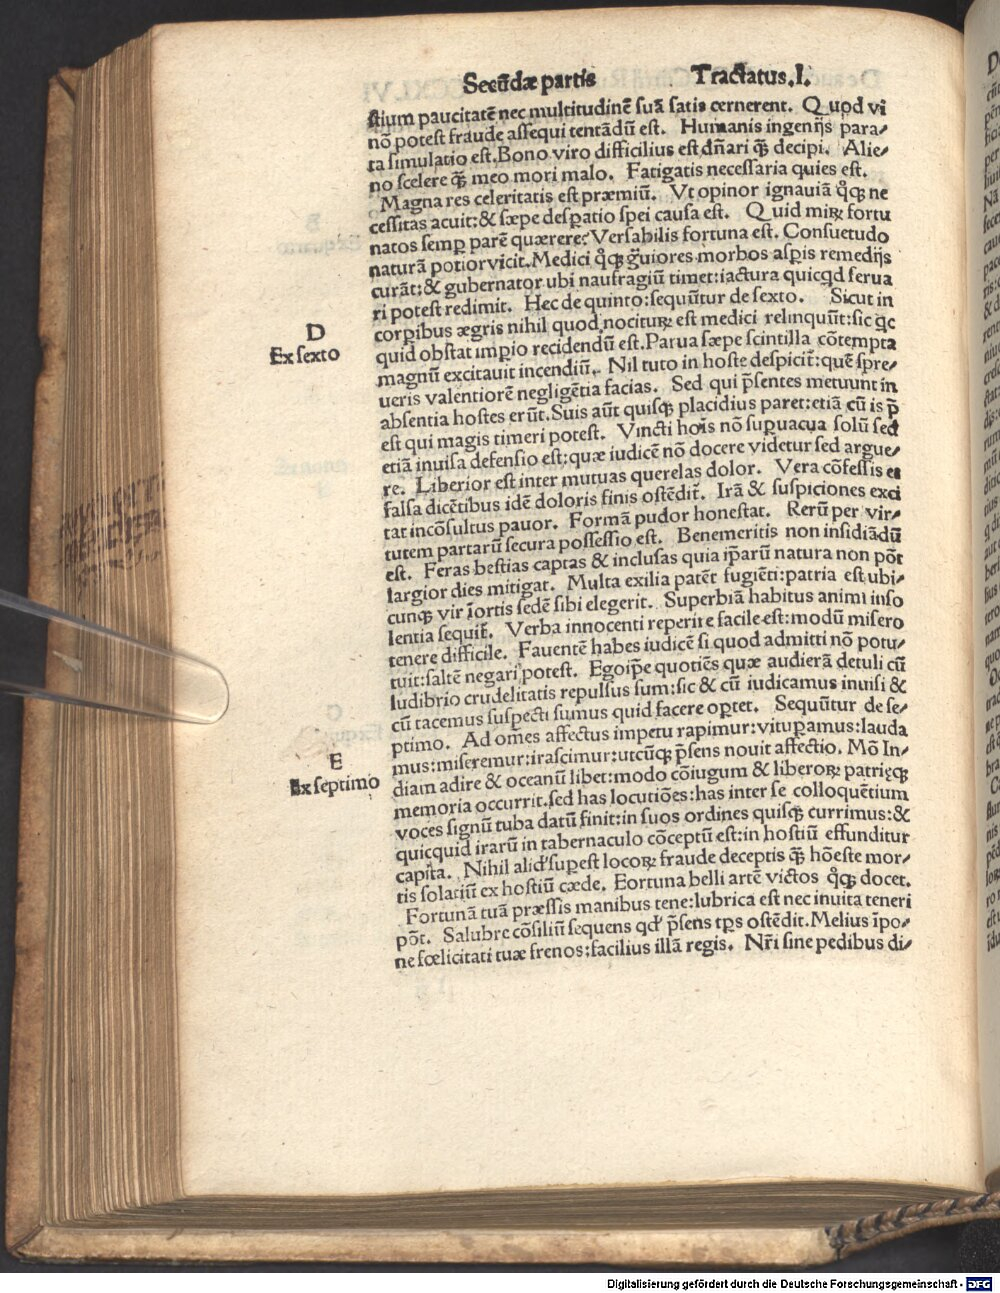 Secūdæ partis Tractatus.I.
stium paucitatē nec multitudinē suā satis cernerent. Quod vi
nō potest fraude assequi tentādū est. Humanis ingenijs para/
ta simulatio est.Bono viro difficilius est dn̄ari q̄ȝ decipi. Alie/
no scelere q̄ȝ meo mori malo. Fatigatis necessaria quies est.
Magna res celeritatis est præmiū. Vt opinor ignauiā qͦqȝ ne
cessitas acuit:& sæpe desp̱atio spei causa est. Quid miꝝ fortu
natos semp̱ parē quærere? Versabilis fortuna est. Consuetudo
naturā potior vicit.Medici qͦqȝ gͣuiores morbos asp̱is remedijs
curāt:& gubernator ubi naufragiū timet:iactura quicqd ferua
ri potest redimit. Hec de quinto:sequūtur de sexto. Sicut in
D
Ex sexto
corp̱ibus ægris nihil quod nocituꝝ est medici relinquūt:sic qc
quid obstat imp̱io recidendū est.Parua sæpe scintilla cōtempta
magnū excitauit incendiū. Nil tuto in hoste despicit̄:quē spre/
ueris valentiorē negligētia facias. Sed qui p̄sentes metuunt in
absentia hostes erūt.Suis aūt quisqȝ placidius paret:etiā cū is p̄
est qui magis timeri potest. Vincti hoīs nō sup̱uacua solū sed
etiā inuisa defensio est:quæ iudicē nō docere videtur sed argue/
re. Liberior est inter mutuas querelas dolor. Vera cōfessis es
falsa dicētibus idē doloris finis ostēdit̄. Irā & suspiciones exci
tat incōsultus pauor. Formā pudor honestat. Rerū per vir/
tutem partarū secura possessio est. Benemeritis non insidiādū
est. Feras bestias captas & inclusas quia ip̄arū natura non pōt
largior dies mitigat. Multa exilia patēt fugiēti:patria est ubi/
cunqȝ vir īortis sedē sibi elegerit. Superbiā habitus animi inso
lentia sequit̄. Verba innocenti reperire facile est:modū misero
tenere difficile. Fauentē habes iudicē si quod admitti nō potu/
tuit:saltē negari potest. Egoip̄e quotiēs quæ audierā detuli cū
ludibrio crudelitatis repulsus sum:sic & cū iudicamus inuisi &
cū tacemus suspecti sumus quid facere op̱tet. Sequūtur de se/
ptimo. Ad om̄es affectus impetu rapimur:vitup̱amus:lauda
E
Ex septimo
mus:miseremur:irascimur:utcūqȝ p̄sens nouit affectio. Mō In/
diam adire & oceanū libet:modo cōiugum & liberoꝝ patrięqȝ
memoria occurrit.sed has locutiōes:has inter se colloquētium
voces signū tuba datū finit:in suos ordines quisqȝ currimus:&
quicquid irarū in tabernaculo cōceptū est:in hostiū effunditur
capita. Nihil alid' sup̱est locoꝝ fraude deceptis q̄ȝ hōeste mor/
tis solatiū ex hostiū cæde. Eortuna belli artē victos qͦqȝ docet.
Fortunā tuā præssis manibus tene:lubrica est nec inuita teneri
pōt. Salubre cōsiliū sequens qd' p̄sens tp̱s ostēdit.Melius īpo/
ne fœlicitati tuæ frenos:facilius illā regis. Nr̄i sine pedibus di/
Digitalisierung gefördert durch die Deutsche Forschungsgemeinschaft - DFG